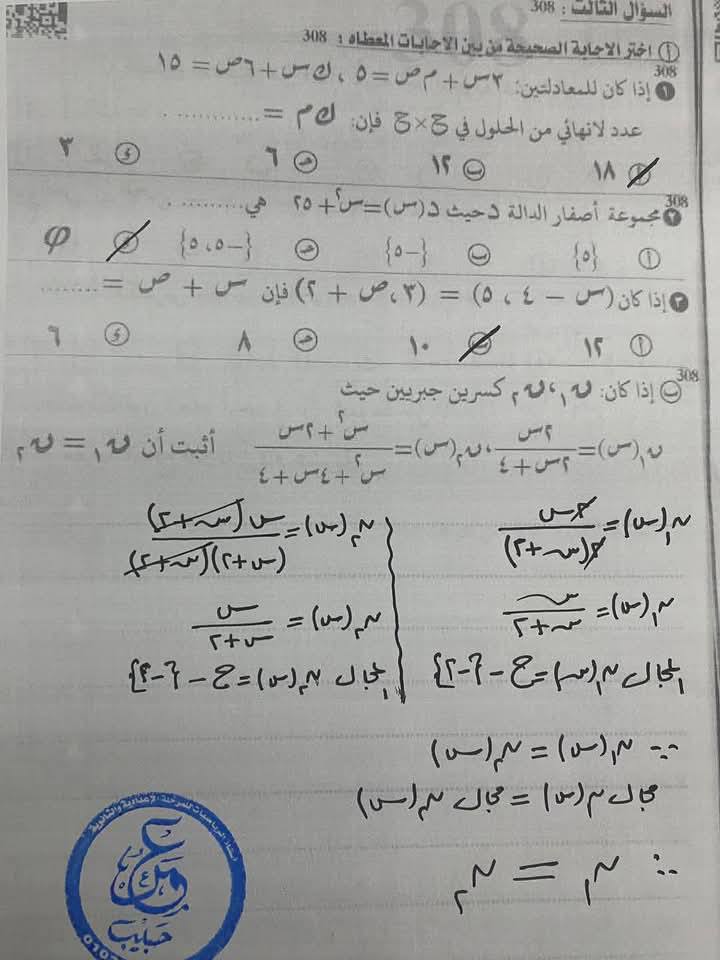 السؤال الثالث : 308
أ اختر الاجابة الصحيحة من بين الاجابات المعطاه : 308
308
١ إذا كان للمعادلتين: ٣س + م ص = ٥ ، ك س + ٦ص = ١٥
عدد لانهائي من الحلول في ح × ح فإن: ك م = ............
أ ١٨ ب ١٢ ج ٦ د ٣
308
٢ مجموعة أصفار الدالة د حيث د(س) = س٢ + ٢٥ هي..........
أ {٥} ب {-٥} ج {-٥، ٥} د φ
٣ إذا كان (س - ٤ ، ٥) = (٣ ، ص + ٢) فإن س + ص = ........
أ ١٢ ب ١٠ ج ٨ د ٦
308
ب إذا كان: ن١، ن٢ كسرين جبريين حيث
ن١(س) = ٢س / (٢س + ٤) ، ن٢(س) = (س٢ + ٢س) / (س٢ + ٤س + ٤) أثبت أن ن١ = ن٢
ن١(س) = ٢س / ٢(س + ٢)
ن١(س) = س / (س + ٢)
المجال ن١(س) = ح - {-٢}
ن٢(س) = س(س + ٢) / (س + ٢)(س + ٢)
ن٢(س) = س / (س + ٢)
المجال ن٢(س) = ح - {-٢}
∵ ن١(س) = ن٢(س)
مجال ن١(س) = مجال ن٢(س)
∴ ن١ = ن٢
أستاذ الرياضيات للمرحلة الإعدادية والثانوية
حبيب